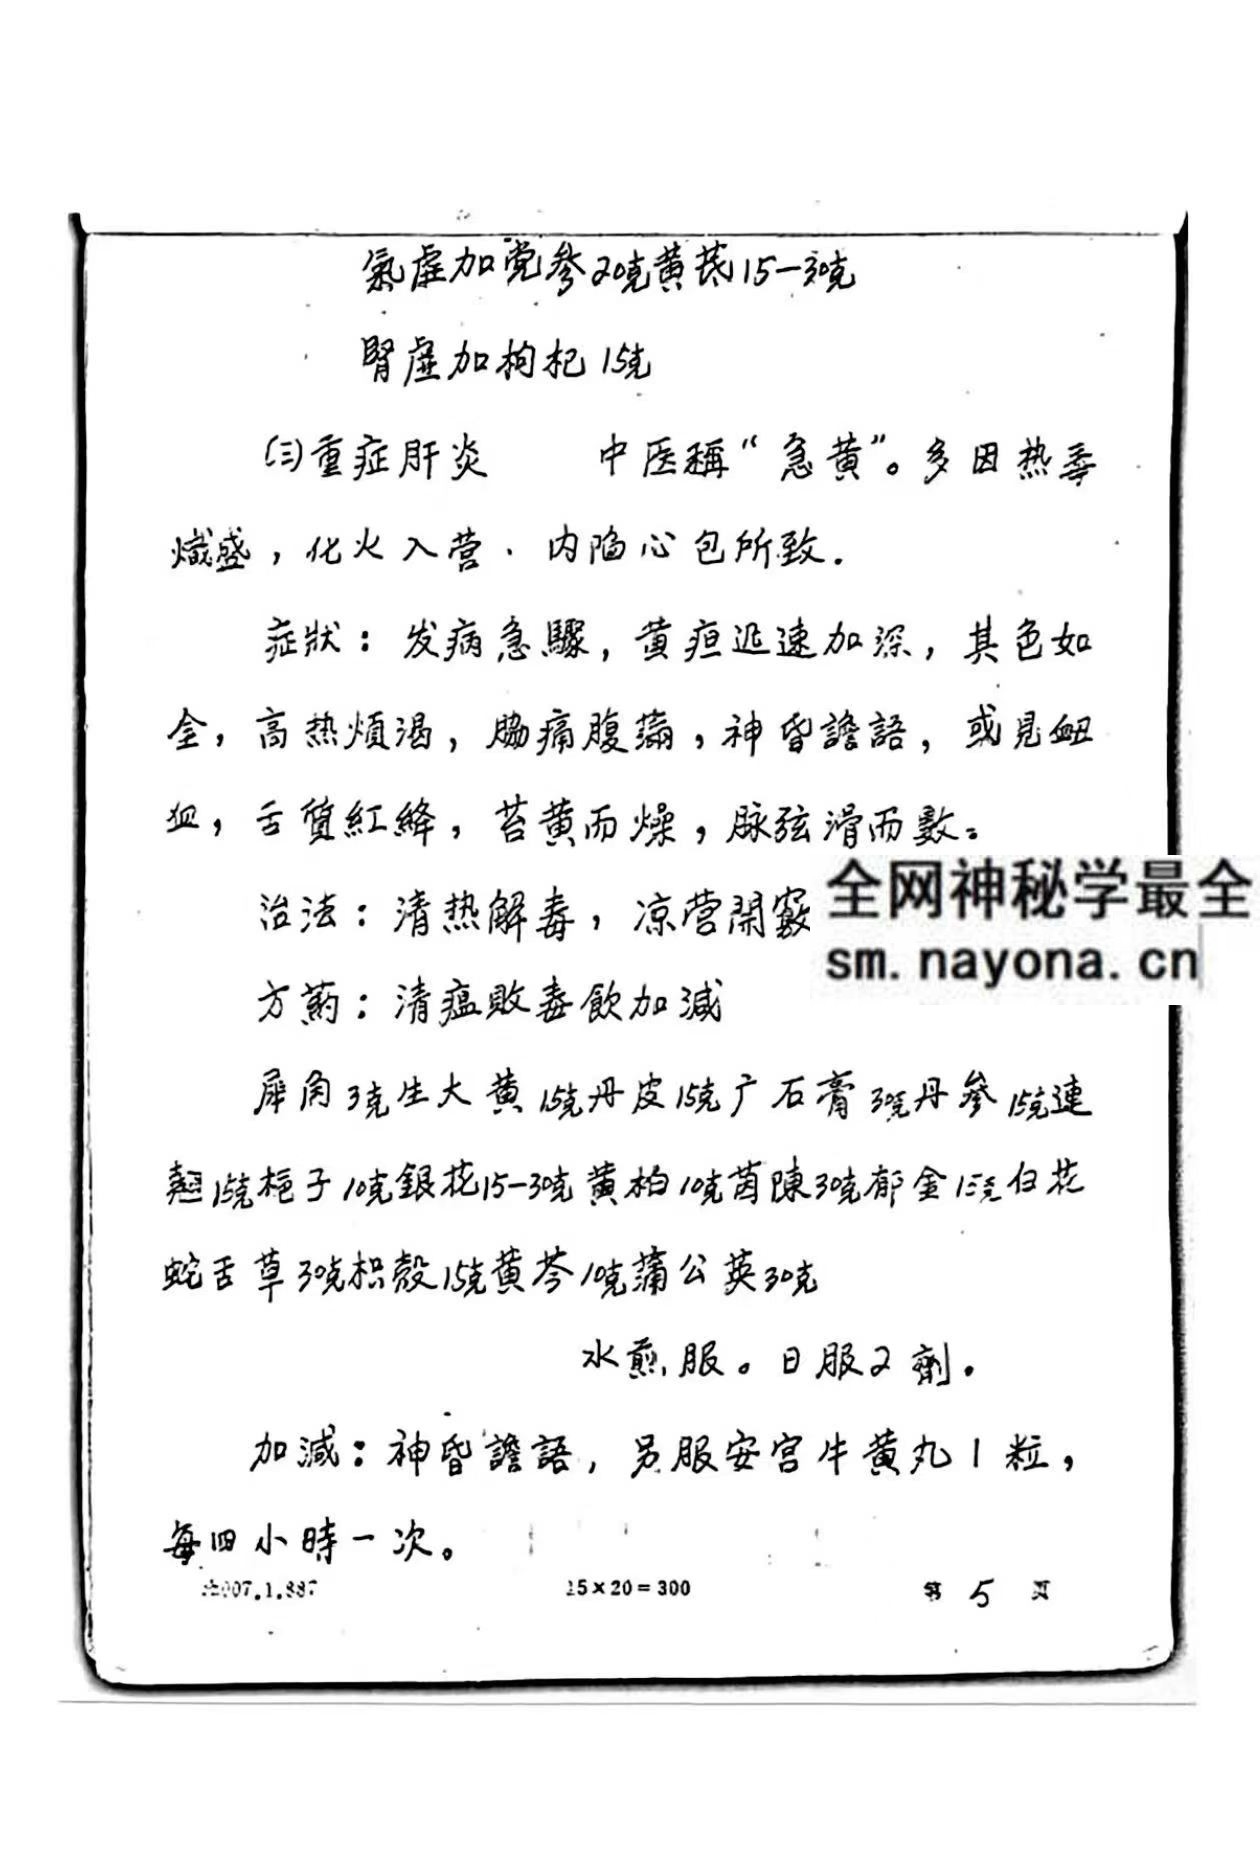 氣虛加党參20克黄芪15-30克
腎虛加枸杞15克
(三)重症肝炎 中医稱“急黄”。多因热毒
熾盛，化火入营、内陷心包所致.
症狀：发病急驟，黄疸迅速加深，其色如
金，高热煩渴，脇痛腹满，神昏譫語，或見衄
血，舌質紅絳，苔黄而燥，脉弦滑而數。
治法：清热解毒，凉营開竅
方药：清瘟敗毒飲加減
犀角3克生大黄15克丹皮15克广石膏30克丹參15克連
翹15克栀子10克銀花15-30克黄柏10克茵陳30克郁金15克白花
蛇舌草30克枳殼15克黄芩10克蒲公英30克
水煎服。日服2劑.
加減：神昏譫語，另服安宫牛黄丸1粒，
每四小時一次。
15×20=300
第 5 页
全网神秘学最全
sm.nayona.cn